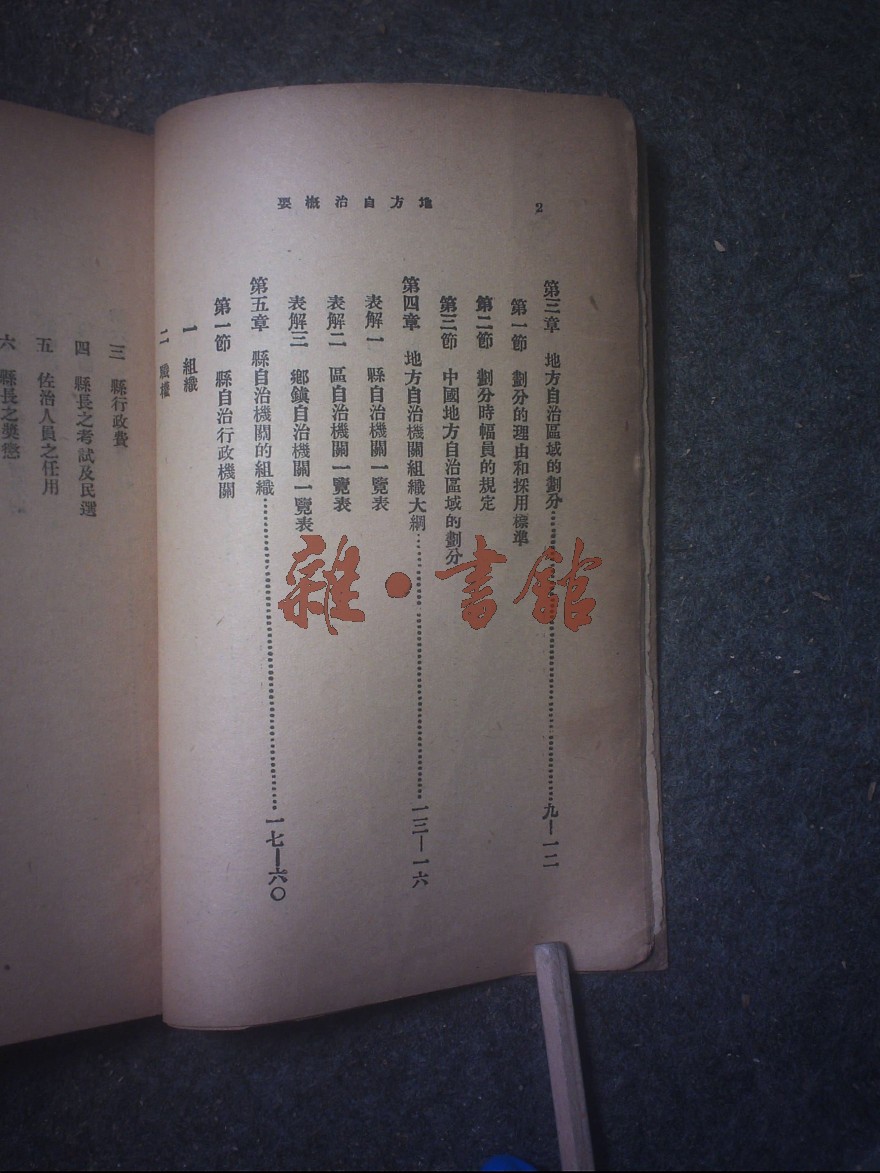 地方自治概要
2
第三章　地方自治區域的劃分……九—一二
第一節　劃分的理由和採用標準
第二節　劃分時幅員的規定
第三節　中國地方自治區域的劃分
第四章　地方自治機關組織大綱……一三—一六
表解一　縣自治機關一覽表
表解二　區自治機關一覽表
表解三　鄉鎮自治機關一覽表
第五章　縣自治機關的組織……一七—六〇
第一節　縣自治行政機關
一　組織
二　職權
三　縣行政費
四　縣長之考試及民選
五　佐治人員之任用
六　縣長之獎懲
雜·書館